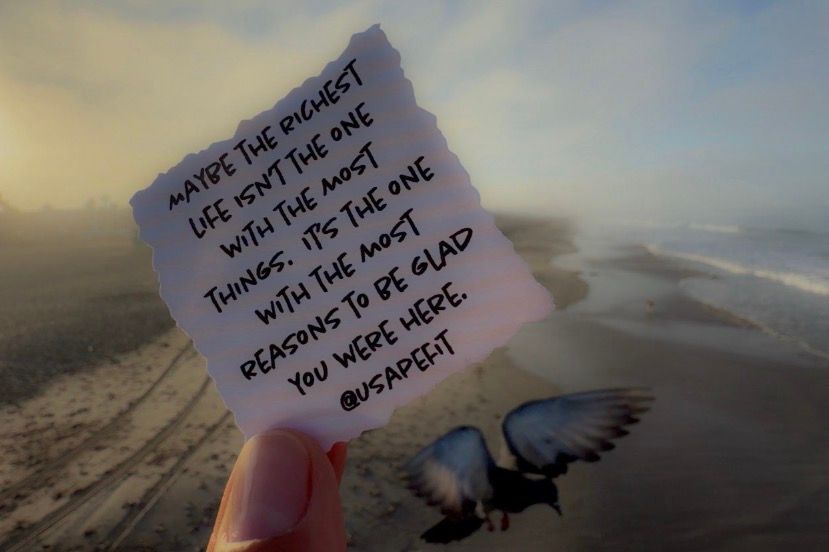 MAYBE THE RICHEST
LIFE ISN'T THE ONE
WITH THE MOST
THINGS. IT'S THE ONE
WITH THE MOST
REASONS TO BE GLAD
YOU WERE HERE.
@USAPEFIT